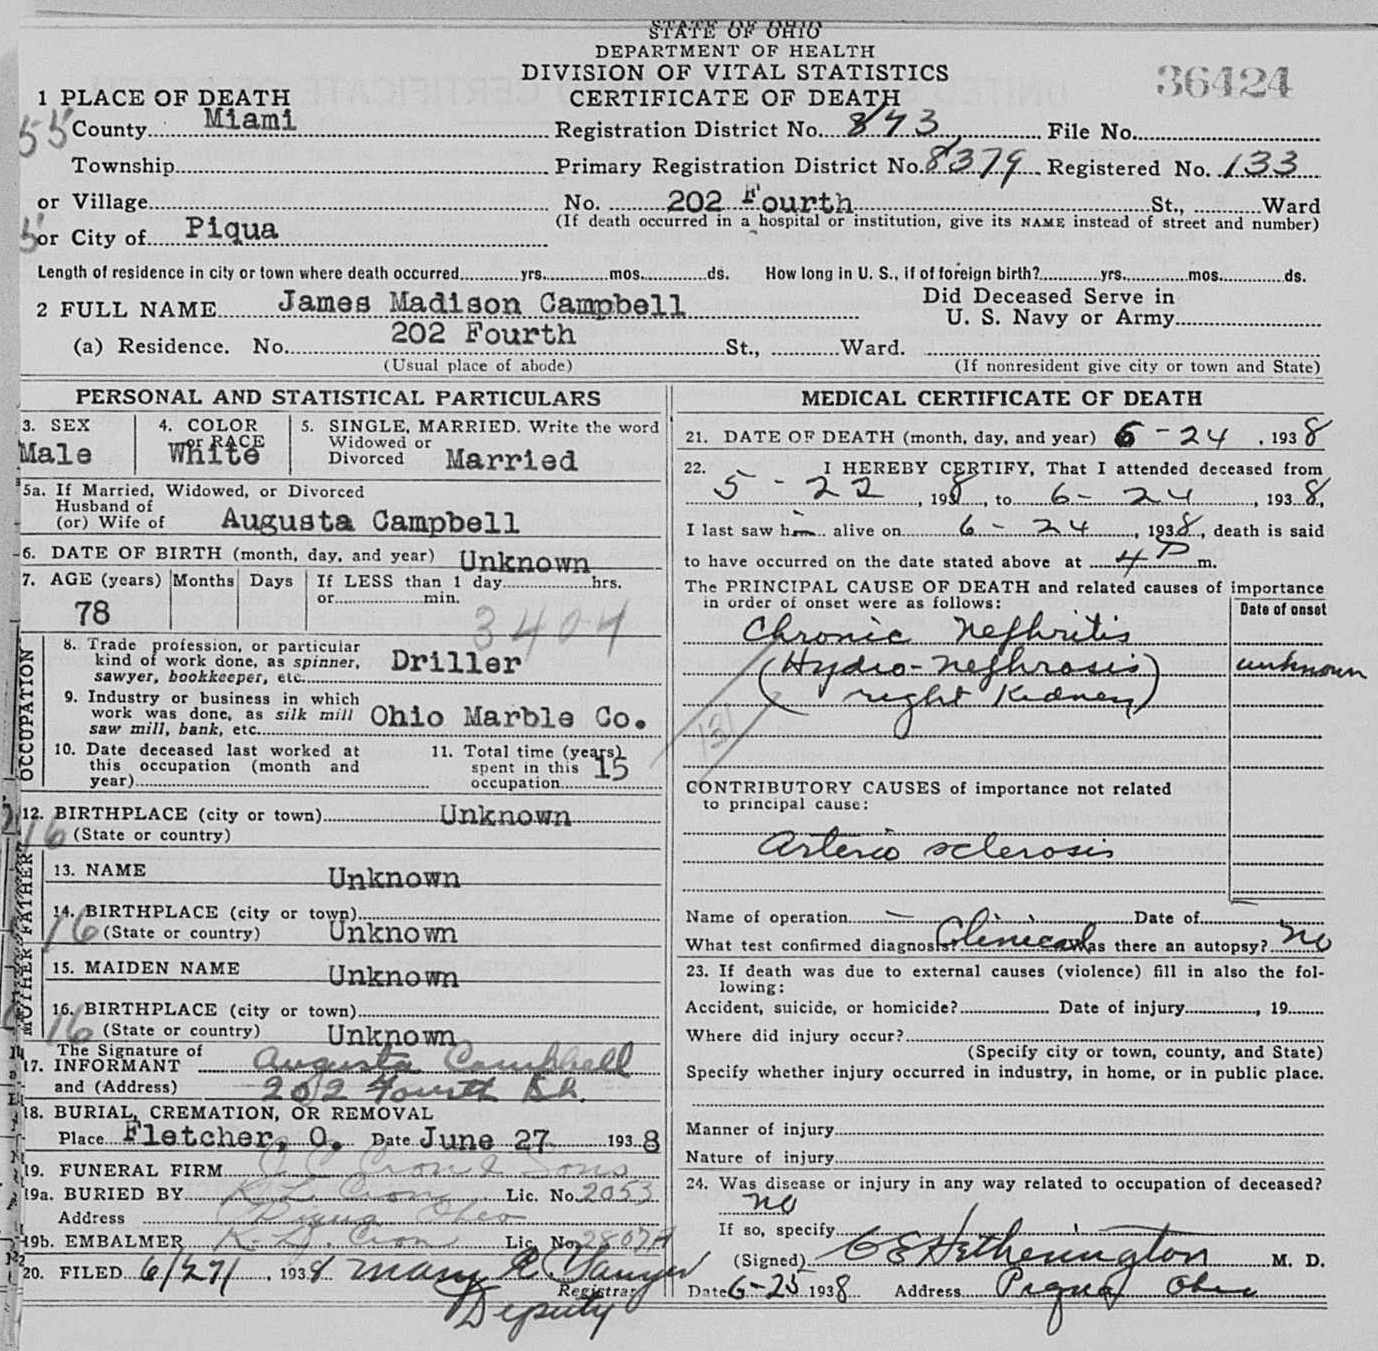 STATE OF OHIO
DEPARTMENT OF HEALTH
DIVISION OF VITAL STATISTICS
CERTIFICATE OF DEATH
36424
1 PLACE OF DEATH
55 County Miami Registration District No. 873 File No.
Township Primary Registration District No. 8379 Registered No. 133
or Village No. 202 Fourth St., Ward
(If death occurred in a hospital or institution, give its NAME instead of street and number)
or City of Piqua
Length of residence in city or town where death occurred yrs. mos. ds. How long in U. S., if of foreign birth? yrs. mos. ds.
2 FULL NAME James Madison Campbell Did Deceased Serve in
U. S. Navy or Army
(a) Residence. No. 202 Fourth St., Ward.
(Usual place of abode) (If nonresident give city or town and State)
PERSONAL AND STATISTICAL PARTICULARS
3. SEX Male
4. COLOR or RACE White
5. SINGLE, MARRIED. Write the word
Widowed or
Divorced Married
5a. If Married, Widowed, or Divorced
Husband of
(or) Wife of Augusta Campbell
6. DATE OF BIRTH (month, day, and year) Unknown
7. AGE (years) Months Days If LESS than 1 day hrs.
or min.
78
3404
OCCUPATION
8. Trade profession, or particular
kind of work done, as spinner,
sawyer, bookkeeper, etc. Driller
9. Industry or business in which
work was done, as silk mill
saw mill, bank, etc. Ohio Marble Co.
10. Date deceased last worked at
this occupation (month and
year)
11. Total time (years)
spent in this
occupation 15
12. BIRTHPLACE (city or town) Unknown
16 (State or country)
FATHER
13. NAME Unknown
14. BIRTHPLACE (city or town)
16 (State or country) Unknown
MOTHER
15. MAIDEN NAME Unknown
16. BIRTHPLACE (city or town)
16 (State or country) Unknown
The Signature of
17. INFORMANT Augusta Campbell
and (Address) 202 Fourth St.
18. BURIAL, CREMATION, OR REMOVAL
Place Fletcher, O. Date June 27 1938
19. FUNERAL FIRM J C Cron & Sons
19a. BURIED BY R. L. Cron Lic. No. 2053
Address Piqua Ohio
19b. EMBALMER R. D. Cron Lic. No. 2807A
20. FILED 6/27/, 1938 Mary Registrar
Deputy
MEDICAL CERTIFICATE OF DEATH
21. DATE OF DEATH (month, day, and year) 6 - 24, 1938
22. I HEREBY CERTIFY, That I attended deceased from
5 - 22, 1938, to 6 - 24, 1938,
I last saw him alive on 6 - 24, 1938, death is said
to have occurred on the date stated above at 4 P m.
The PRINCIPAL CAUSE OF DEATH and related causes of importance
in order of onset were as follows: Date of onset
Chronic Nephritis
(Hydro-nephrosis unknown
right Kidney)
131
CONTRIBUTORY CAUSES of importance not related
to principal cause:
Arterio sclerosis
Name of operation — Date of
What test confirmed diagnosis? Clinical Was there an autopsy? No
23. If death was due to external causes (violence) fill in also the fol-
lowing:
Accident, suicide, or homicide? Date of injury, 19
Where did injury occur?
(Specify city or town, county, and State)
Specify whether injury occurred in industry, in home, or in public place.
Manner of injury
Nature of injury
24. Was disease or injury in any way related to occupation of deceased?
No
If so, specify
(Signed) C E Hetherington M. D.
Date 6-25 1938 Address Piqua Ohio